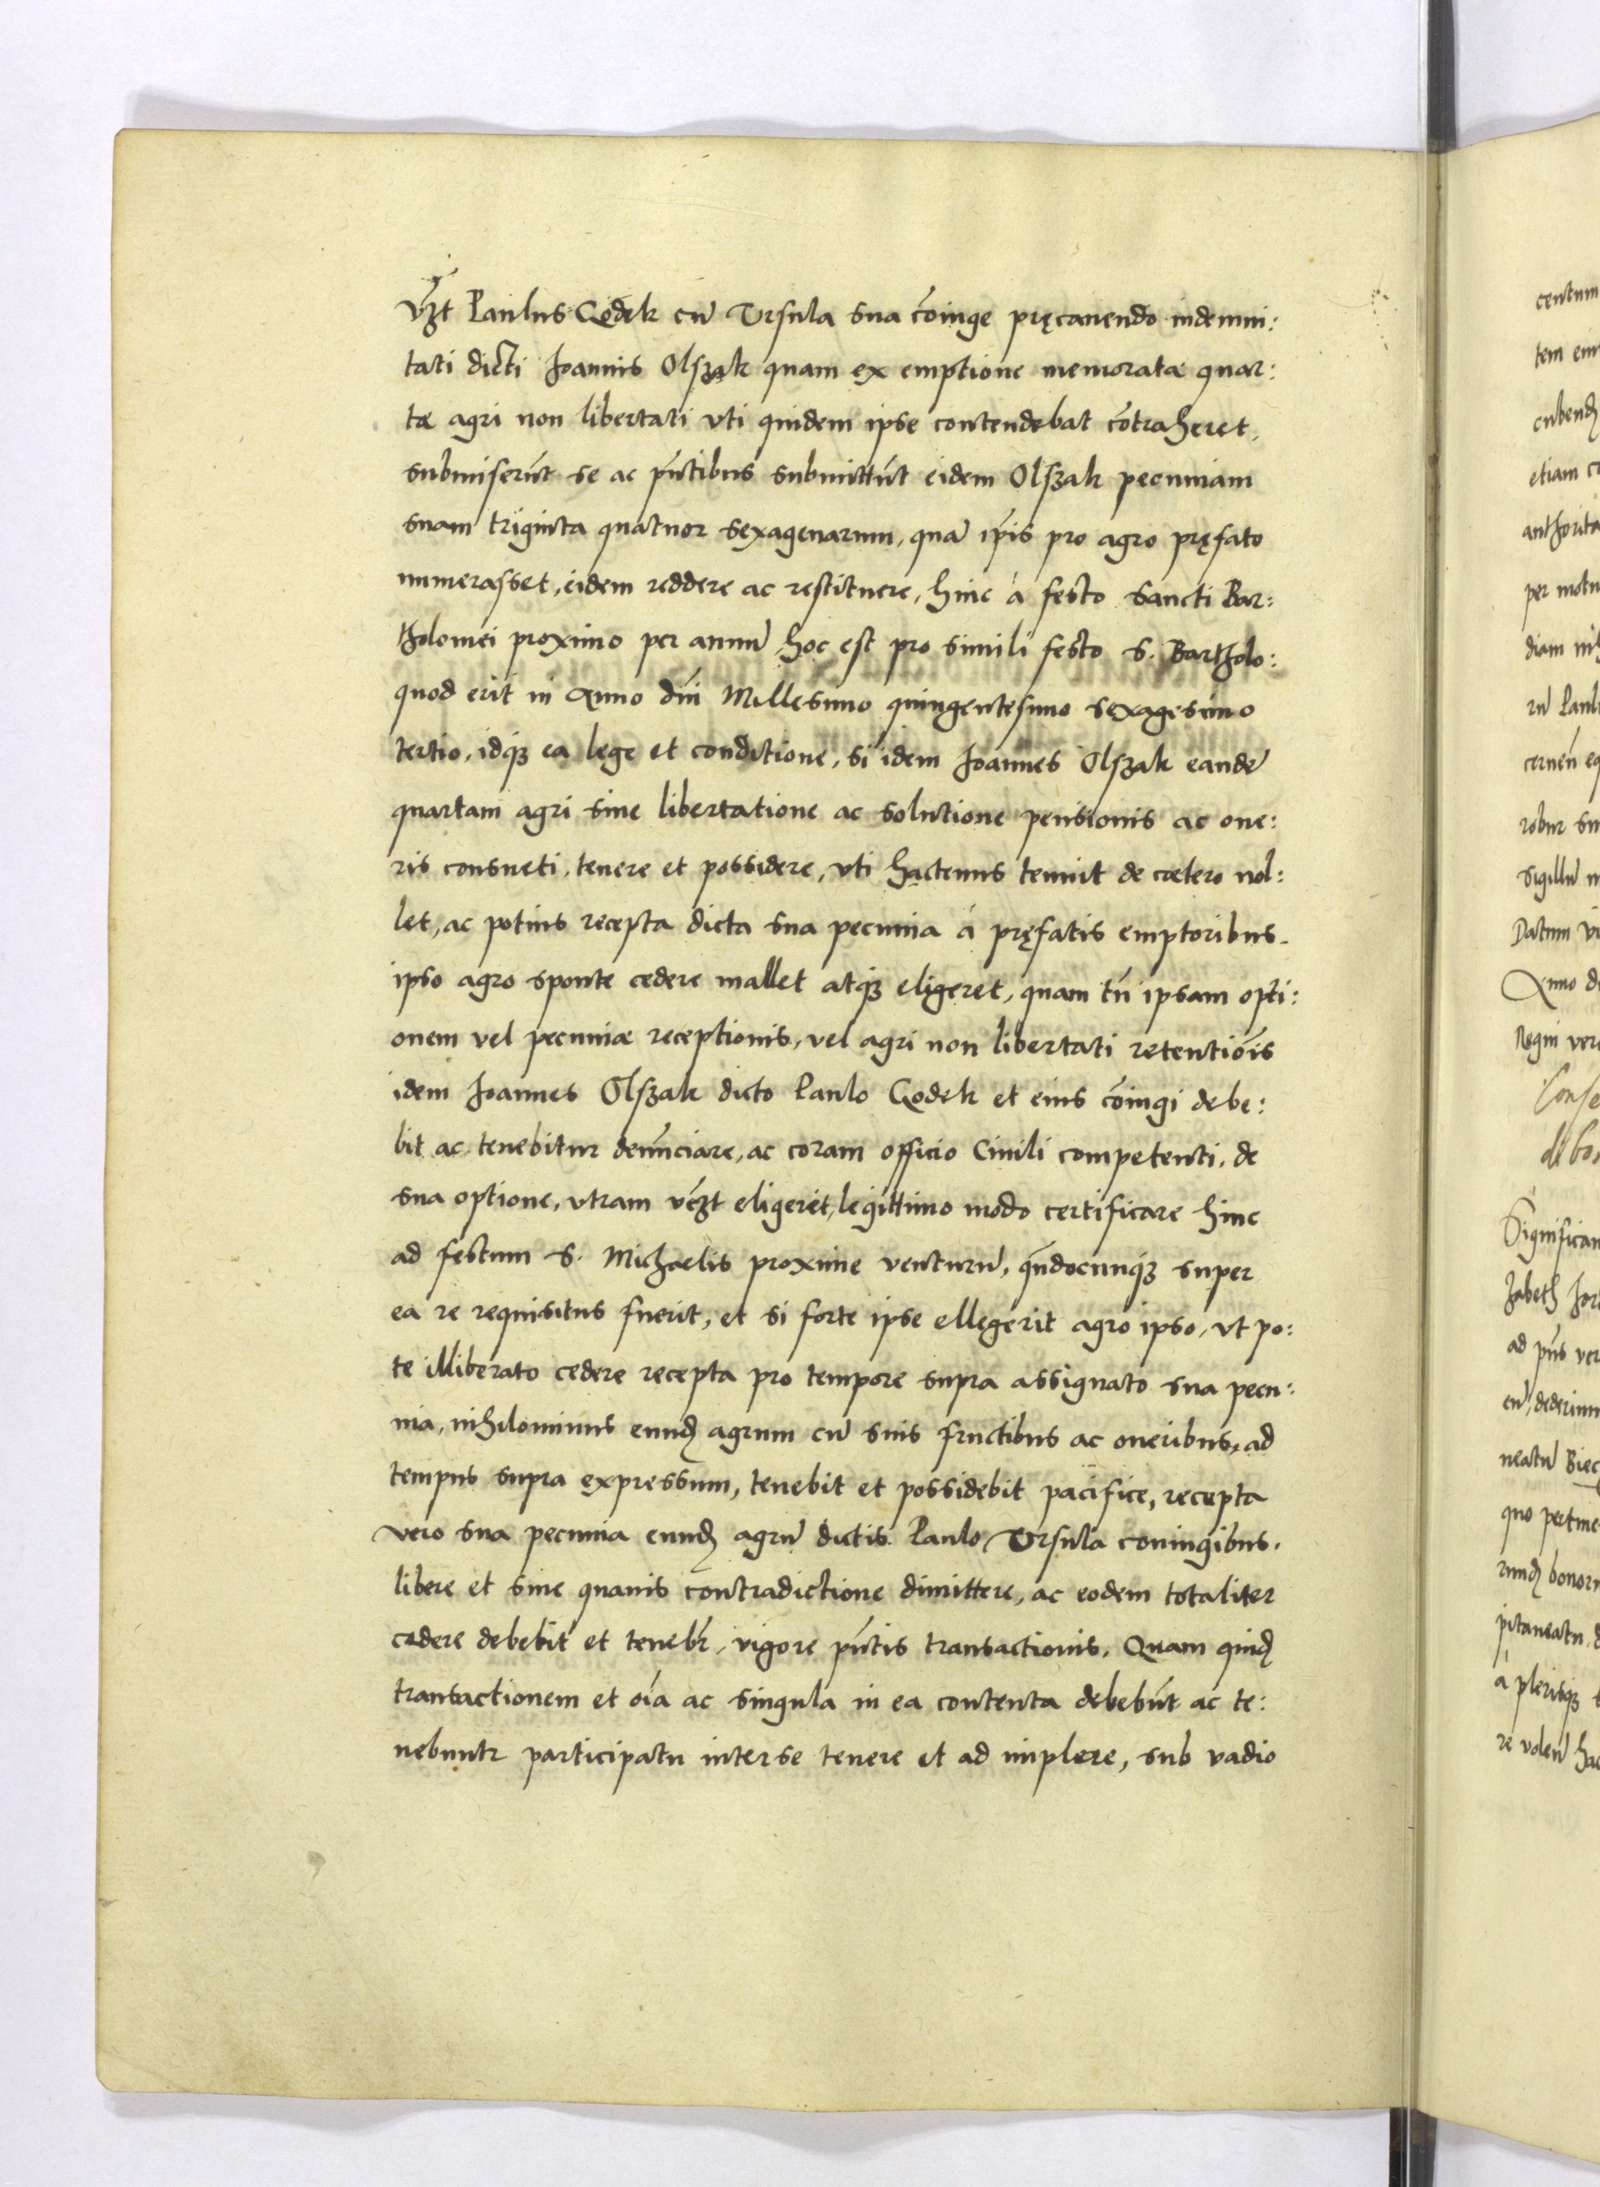 vꝫt Paulus Godek cū Vrsula sua cōiuge pręcauendo indemni:
tati dicti Joannis Olszak quam ex emptione memoratæ quar:
tæ agri non libertati vti quidem ipse contendebat cōtraheret,
submiserūt se ac pūtibus submittūt eidem Olszak pecuniam
suam triginta quatuor sexagenarum, quā ip̄is pro agro pręfato
numerasset, eidem reddere ac restituere, hinc á festo Sancti Bar:
tholomei proximo per annū hoc est pro simili festo S. Bartholo:
quod erit in Anno dn̄i Millesimo quingentesimo sexagesimo
tertio, idqꝫ ea lege et conditione, si idem Joannes Olszak eandē
quartam agri sine libertatione ac solutione pensionis ac one:
ris consueti, tenere et possidere, vti hactenus tenuit de cætero nol:
let, ac potius recepta dicta sua pecunia á pręfatis emptoribus.
ipso agro sponte cedere mallet atqꝫ eligeret, quam tn̄ ipsam opti:
onem vel pecuniæ receptionis, vel agri non libertati retentiōis
idem Joannes Olszak dicto Paulo Godek et eius cōiugi debe:
bit ac tenebitur denūciare, ac coram officio Ciuili competenti, de
sua optione, vtram vꝫt eligerit, legittimo modo certificare hinc
ad festum S. Michaelis proxime venturū, qn̄docunqꝫ super
ea re requisitus fuerit, et si forte ipse ellegerit agro ipso, vt po:
te illiberato cedere recepta pro tempore supra assignato sua pecu:
nia, nihilominus eund̨ agrum cū suis fructibus ac oneribus, ad
tempus supra expressum, tenebit et possidebit pacifice, recepta
vero sua pecunia eund̨ agrū dictis Paulo Vrsula coniugibus,
libere et sine quauis contradictione dimittere, ac eodem totaliter
cedere debebit et teneb̄r, vigore pn̄tis transactionis. Quam quid̨
transactionem et oīa ac singula in ea contenta debebūt ac te:
nebuntr participatu inter se tenere et ad implere, sub vadio